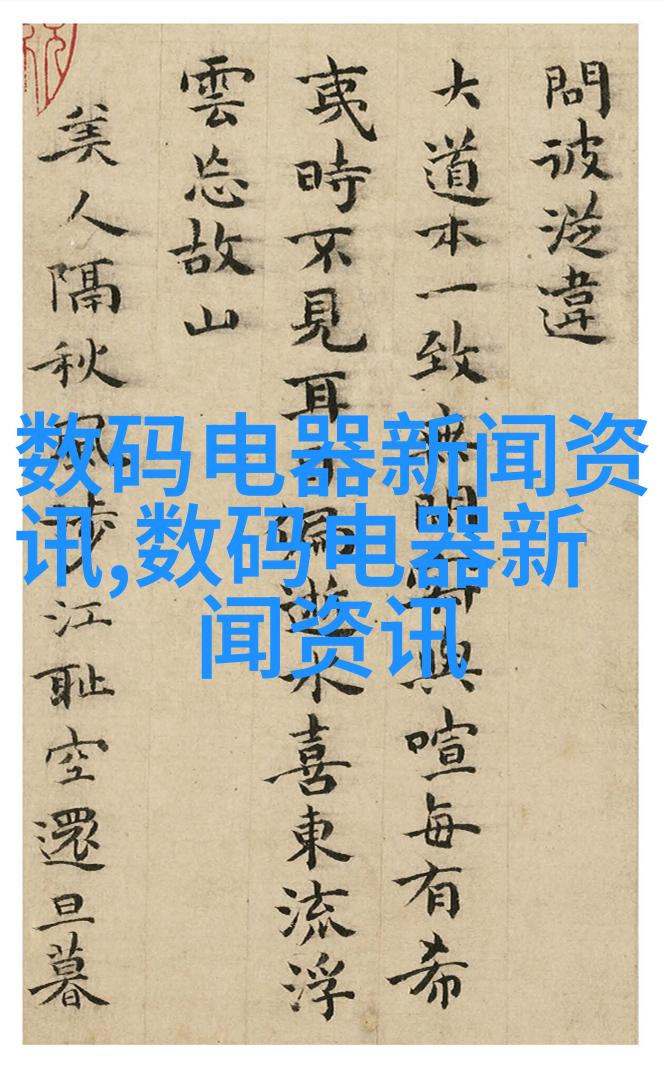 問彼從違
大道本一致無與喧每有希
夷時不見耳不水喜東流浮
雲忘故山
美人隔秋風涉江耻空還旦暮
数码电器新闻资
讯,数码电器新
闻资讯